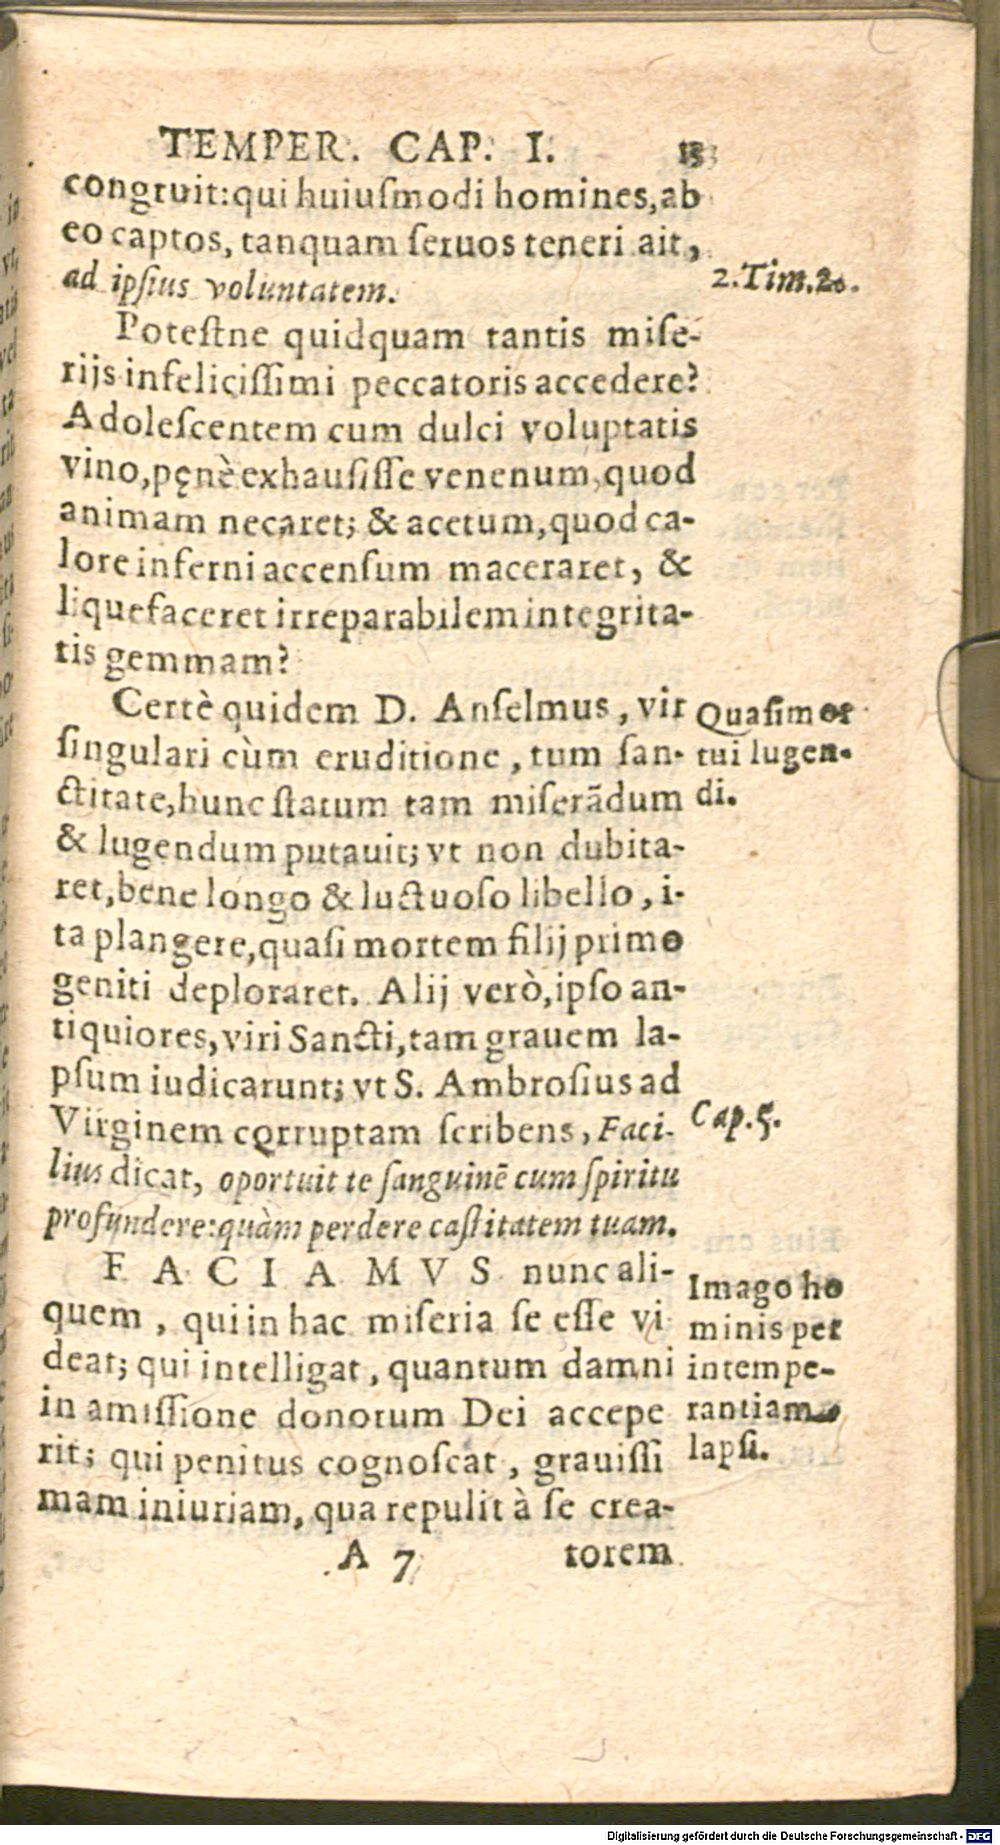 TEMPER. CAP. I. 13
congruit: qui huiuſmodi homines, ab
eo captos, tanquam ſeruos teneri ait,
ad ipſius voluntatem.
2. Tim. 2.
Poteſtne quidquam tantis miſe-
rijs infeliciſſimi peccatoris accedere?
Adoleſcentem cum dulci voluptatis
vino, pęnè exhauſiſſe venenum, quod
animam necaret; & acetum, quod ca-
lore inferni accenſum maceraret, &
liquefaceret irreparabilem integrita-
tis gemmam?
Certè quidem D. Anſelmus, vir
ſingulari cùm eruditione, tum ſan-
ctitate, hunc ſtatum tam miſerãdum
& lugendum putauit; vt non dubita-
ret, bene longo & luctuoſo libello, i-
ta plangere, quaſi mortem filij primo
geniti deploraret. Alij verò, ipſo an-
tiquiores, viri Sancti, tam grauem la-
pſum iudicarunt; vt S. Ambroſius ad
Virginem corruptam ſcribens, Faci-
lius dicat, oportuit te ſanguinē cum ſpiritu
profundere: quàm perdere caſtitatem tuam.
Quaſi mor
tui lugen-
di.
Cap. 5.
FACIAMVS nunc ali-
quem, qui in hac miſeria ſe eſſe vi
deat; qui intelligat, quantum damni
in amiſſione donorum Dei accepe
rit; qui penitus cognoſcat, grauiſſi
mam iniuriam, qua repulit à ſe crea-
Imago ho
minis per
intempe-
rantiam
lapſi.
A 7 torem
Digitalisierung gefördert durch die Deutsche Forschungsgemeinschaft - DFG